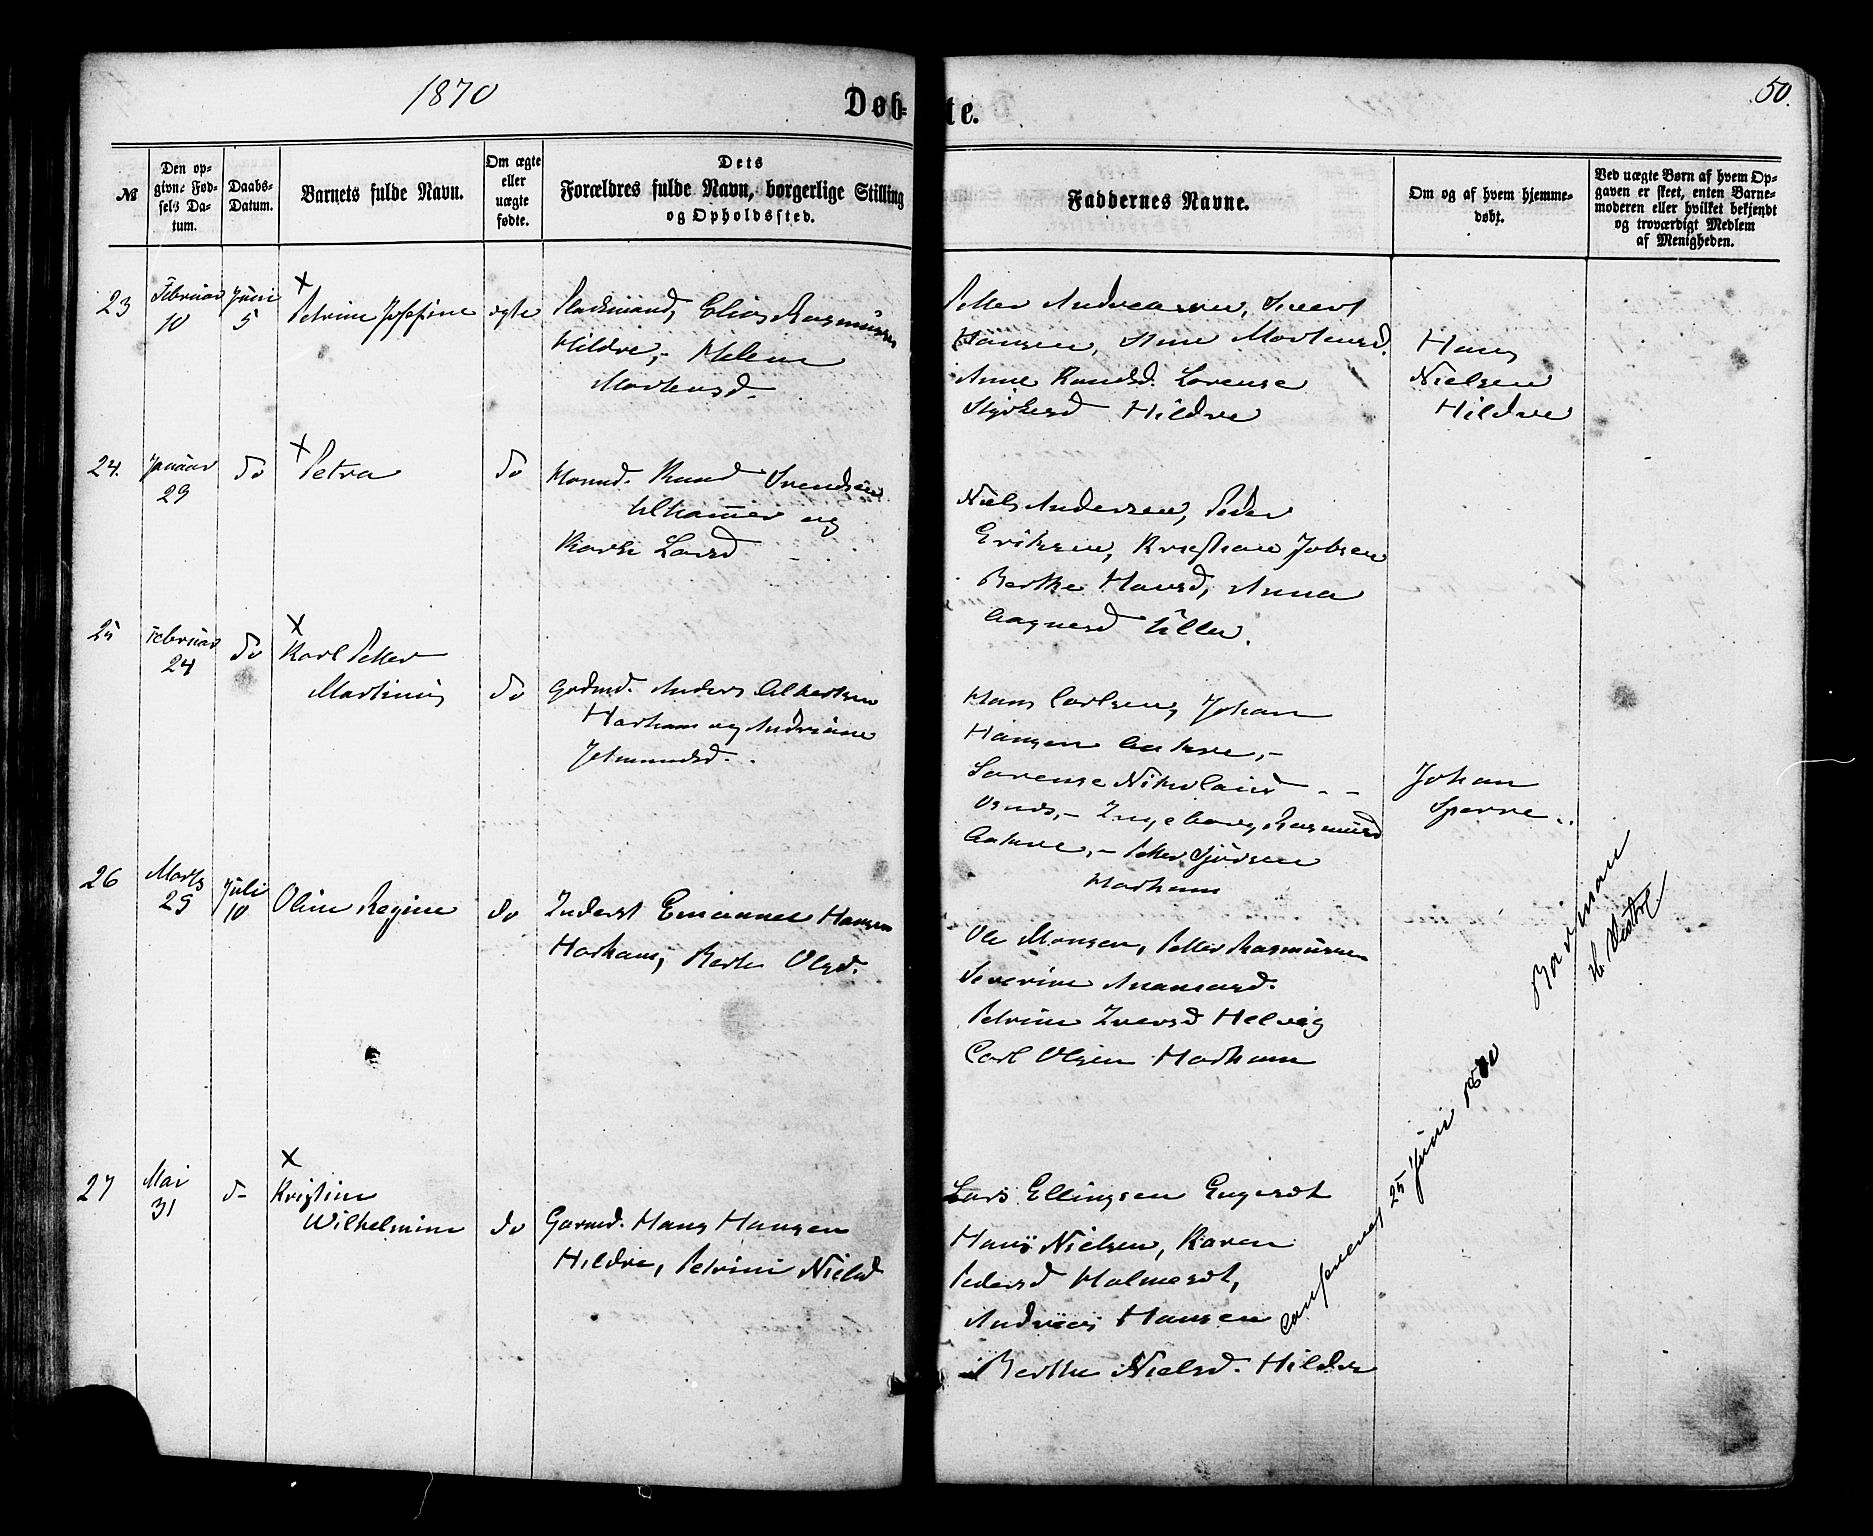 1870
Døb-
te.
50.
№
Den op-
givne Fød-
sels Da-
tum.
Daabs-
Datum.
Barnets fulde Navn.
Om ægte
eller
uægte
fødte.
Dets
Forældres fulde Navn, borgerlige Stilling
og Opholdssted.
Faddernes Navne.
Om og af hvem hjemme-
døbt.
Ved uægte Børn af hvem Op-
gaven er skeet, enten Barne-
moderen eller hvilket bekjendt
og troværdigt Medlem
af Menigheden.
23
Februar
10
Juni
5
×
Petrine Josefine
ægte
Pladsmand, Elias Rasmussen
Hildre, Helene
Mortensd.
Petter Andreassen, Sivert
Hansen, Stine Mortensd.
Anne Knudsd. Lorense
Hildre
Hans
Nielsen
Hildre
24.
Januar
29
do
×
Petra
do
Knud Svendsen
Ulhammer og
Larsd
Niels Andersen, Peder
Eriksen, Kristian Jobsen
Berthe Hansd, Anna
Aagesd Ulla.
25
Februar
24
do
×
Karl Petter
Martinus
do
Grdmd. Anders Albertsen
Harham og Andriane
Jetmundsd.
Hans Carlsen, Johan
Hansen Aakre,
Lorense Nikolaisd
Ingeborg Rasmusd
Aakre, Petter Sjursen
Harham
Johan
Sperre
26
Marts
25
Juli
10
Oline Regine
do
Inderst Emanuel Hansen
Harham, Berte Olsd.
Ole Monsen, Petter Rasmussen
Severine Ananiasd.
Petrine Iversd Helvig
Carl Olsen Harham
27
Mai
31
d-
×
Kristine
Wilhelmine
do
Garmd. Hans Hansen
Hildre, Petrine Nielsd
Lars Ellingsen Engeset
Hans Nielsen, Karen
Pedersd Holmeset,
Andreas Hansen
Berthe Nielsd. Hildre
Confereret 25 Juni 1870